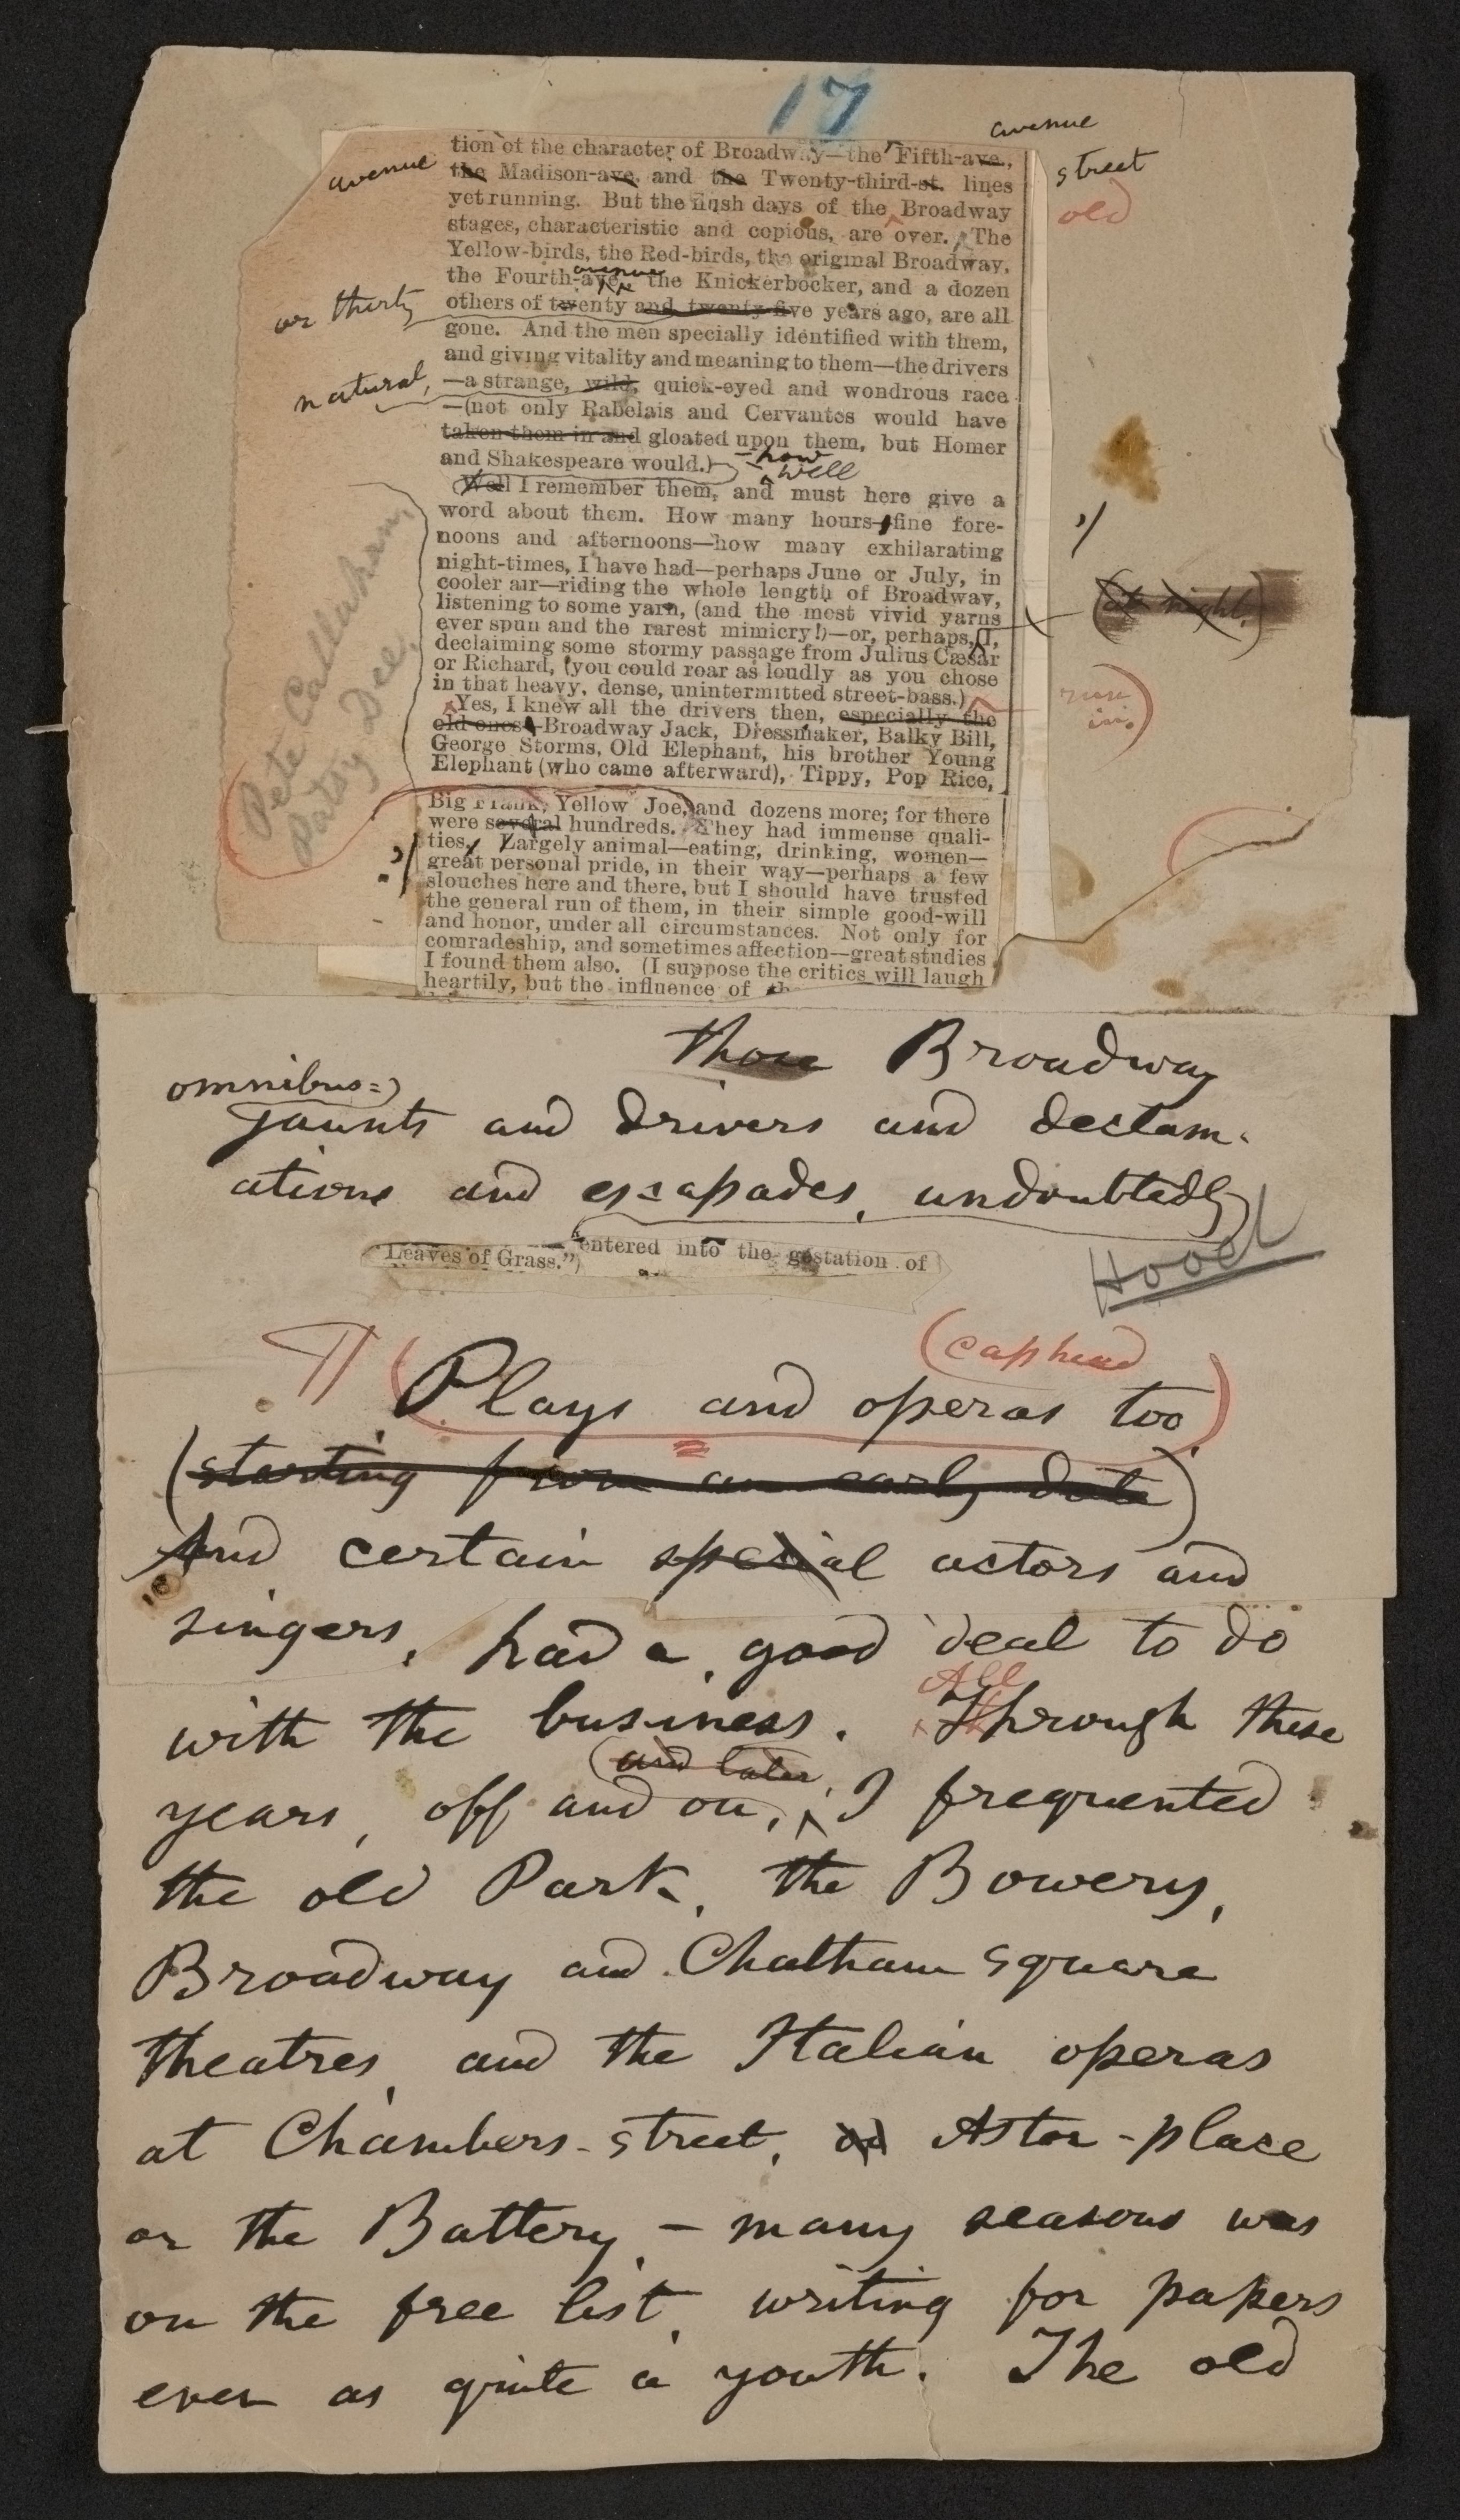 17
avenue
tion of the character of Broadway—the Fifth-ave.,
avenue
the Madison-ave. and the Twenty-third-st. lines
street
yet running. But the flush days of the Broadway
old
stages, characteristic and copious, are over. The
Yellow-birds, the Red-birds, the original Broadway,
avenue
the Fourth-ave., the Knickerbocker, and a dozen
or thirty
others of twenty and twenty-five years ago, are all
gone. And the men specially identified with them,
and giving vitality and meaning to them—the drivers
natural,
—a strange, wild, quick-eyed and wondrous race
—(not only Rabelais and Cervantes would have
taken them in and gloated upon them, but Homer
and Shakespeare would.)
—how
well
Well I remember them, and must here give a
word about them. How many hours—fine fore-
noons and afternoons—how many exhilarating
night-times, I have had—perhaps June or July, in
cooler air—riding the whole length of Broadway,
(at night,)
listening to some yarn, (and the most vivid yarns
ever spun and the rarest mimicry!)—or, perhaps, I,
declaiming some stormy passage from Julius Cæsar
or Richard, (you could roar as loudly as you chose
in that heavy, dense, unintermitted street-bass.)
run
in.
Yes, I knew all the drivers then, especially the
old ones—Broadway Jack, Dressmaker, Balky Bill,
George Storms, Old Elephant, his brother Young
Elephant (who came afterward), Tippy, Pop Rice,
Pete Callahan,
Patsy Dee,
Big Frank, Yellow Joe, and dozens more; for there
were several hundreds. They had immense quali-
ties. Largely animal—eating, drinking, women—
great personal pride, in their way—perhaps a few
slouches here and there, but I should have trusted
the general run of them, in their simple good-will
and honor, under all circumstances. Not only for
comradeship, and sometimes affection—great studies
I found them also. (I suppose the critics will laugh
heartily, but the influence of th
those Broadway
omnibus=)
jaunts and drivers and declam-
ations and escapades, undoubtedly
entered into the gestation of
"Leaves of Grass.")
Hood
(cap head
Plays and operas too
(starting from an early date)
And certain special actors and
singers, had a good deal to do
with the business. All
Through these
(and later,
years, off and on, I frequented
the old Park, the Bowery,
Broadway and Chatham square
theatres, and the Italian operas
at Chambers-street, or Astor-place
or the Battery, — many seasons was
on the free list, writing for papers
even as quite a youth. The old